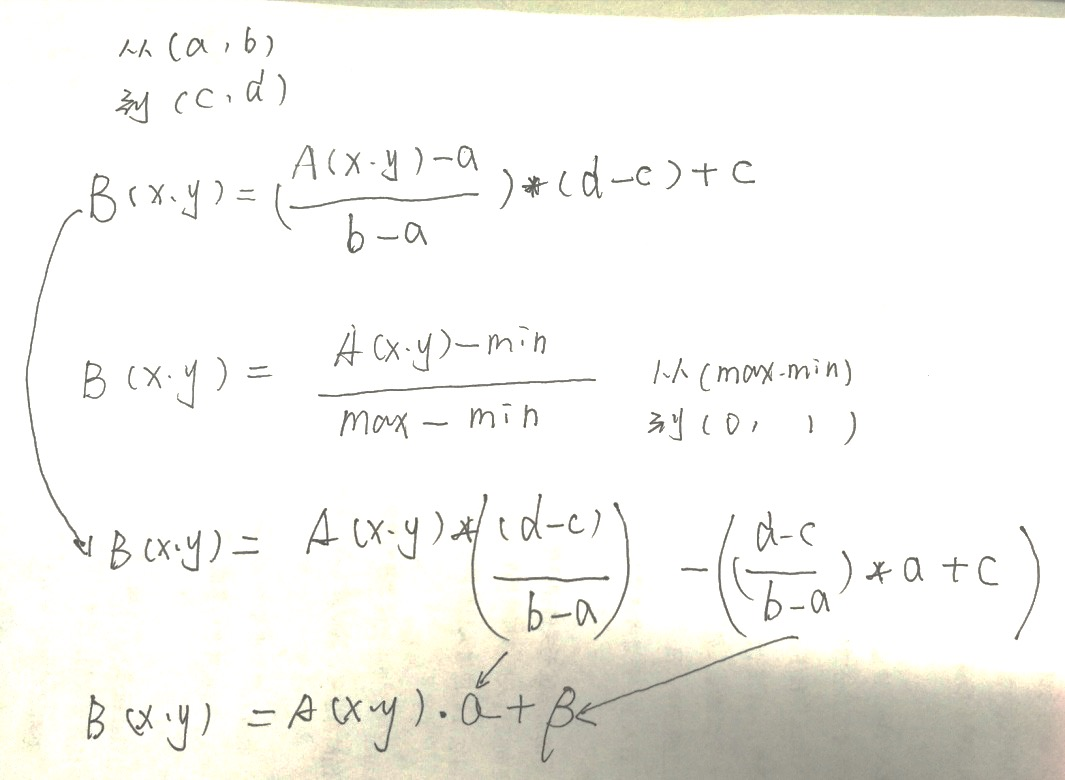 从(a,b)
到(c,d)
B(x.y)=(\frac{A(x.y)-a}{b-a})*(d-c)+c
B(x.y)=\frac{A(x.y)-min}{max-min} 从(max-min)
到(0, 1)
B(x.y)=A(x.y)*(\frac{(d-c)}{b-a}) -((\frac{d-c}{b-a})*a+c)
B(x.y)=A(x.y).a+β